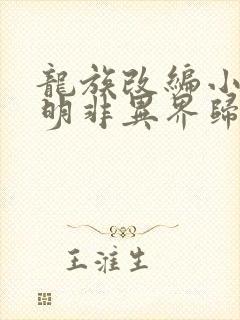 龍族改編小
明非異界歸
王淮生